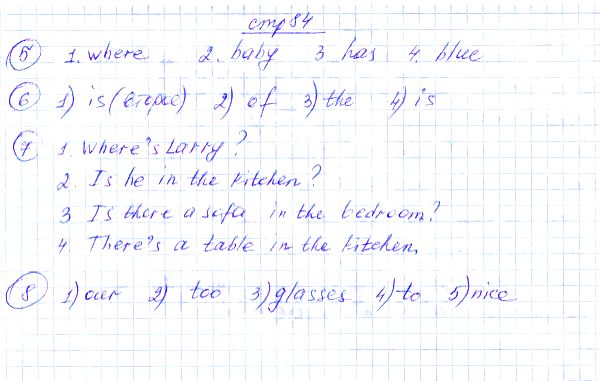 стр 84
5 1. where 2. baby 3 has 4. blue
6 1) is (второе) 2) of 3) the 4) is
7 1. Where's Larry?
2. Is he in the kitchen?
3 Is there a sofa in the bedroom?
4 There's a table in the kitchen.
8 1) our 2) too 3) glasses 4) to 5) nice